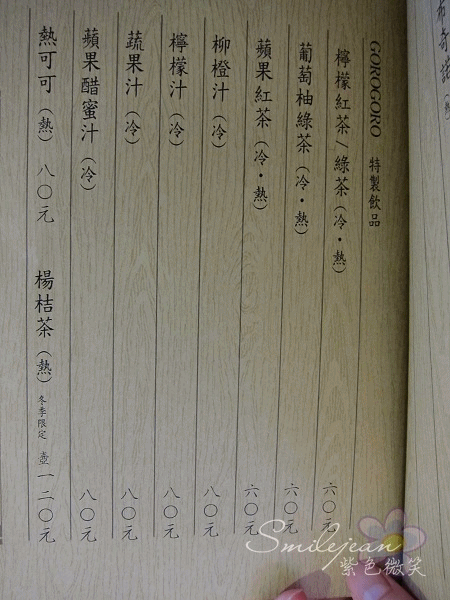 GOROGORO 特製飲品
檸檬紅茶/綠茶(冷·熱) 六〇元
葡萄柚綠茶(冷·熱) 六〇元
蘋果紅茶(冷·熱) 六〇元
柳橙汁(冷) 八〇元
檸檬汁(冷) 八〇元
蔬果汁(冷) 八〇元
蘋果醋蜜汁(冷) 八〇元
熱可可(熱) 八〇元 楊桔茶(熱) 冬季限定 壺一二〇元
Smilejean
紫色微笑